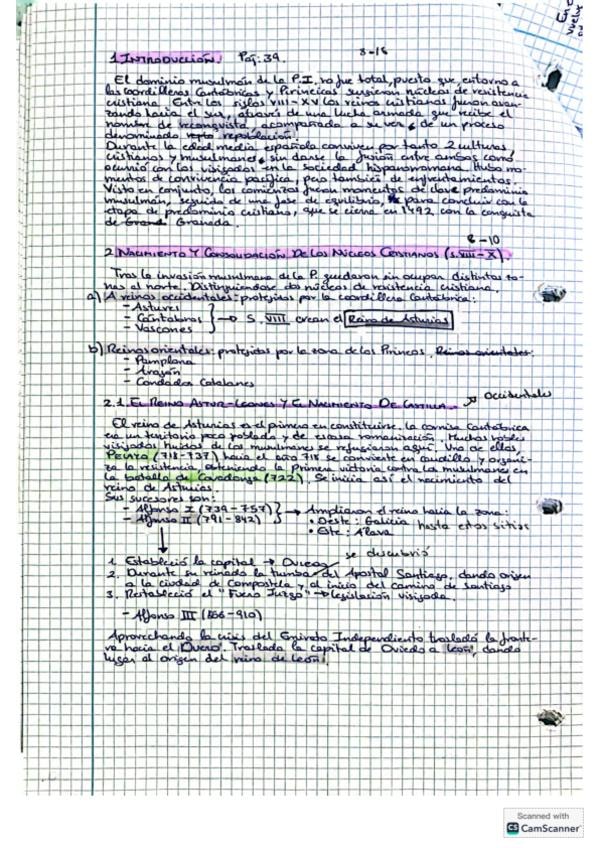 1. INTRODUCCIÓN: Pág: 39. 8-15
El dominio musulmán de la P.I, no fue total, puesto que, entorno a
las cordilleras Cantábricas y Pirineicas surgieron núcleos de resistencia
cristiana. Entre los siglos VIII-XV los reinos cristianos fueron avan-
zando hacia el sur, através de una lucha armada que recibe el
nombre de reconquista, acompañada a su vez, de un proceso
denominado repoblación.
Durante la edad media española conviven por tanto 2 culturas,
cristianos y musulmanes, sin darse la fusión entre ambos como
ocurrió con los visigodos en la sociedad hispanorromana. Hubo mo-
mentos de convivencia pacífica, pero también de enfrentamientos.
Visto en conjunto, los comienzos fueron momentos de clave predominio
musulmán, seguido de una fase de equilibrio, para concluir con la
etapa de predominio cristiano, que se cierra en 1492 con la conquista
de Granada.
8-10
2. NACIMIENTO Y CONSOLIDACIÓN DE LOS NÚCLEOS CRISTIANOS (s. VIII-X).
Tras la invasión musulmana de la P. quedaron sin ocupar distintas zo-
nas al norte. Distinguiéndose dos núcleos de resistencia cristiana.
a) A reinos occidentales: protegidos por la cordillera Cantábrica:
- Astures
- Cántabros → S. VIII crean el Reino de Asturias
- Vascones
b) Reinos orientales: protegidos por la zona de los Pirineos. Reinos orientales:
- Pamplona
- Aragón
- Condados Catalanes
2.1. EL REINO ASTUR-LEONES Y EL NACIMIENTO DE CASTILLA → occidentales
El reino de Asturias es el primero en constituirse. La cornisa Cantábrica
era un territorio poco poblado y de escasa romanización. Muchos nobles
visigodos huidos de los musulmanes se refugiaron aquí. Uno de ellos,
Pelayo (718-737) hacia el año 718 se convierte en caudillo y organi-
za la resistencia, obteniendo la Primera victoria contra los musulmanes en
la batalla de Covadonga (722). Se inicia así el nacimiento del
reino de Asturias.
Sus sucesores son:
- Alfonso I (739-757) → Ampliaron el reino hacia la zona:
- Alfonso II (791-842) • Oeste: Galicia hasta estos sitios
• Este: Álava
se descubrió
1. Estableció la capital → Oviedo
2. Durante su reinado la tumba del Apostol Santiago, dando origen
a la ciudad de Compostela y al inicio del camino de Santiago
3. Restableció el "Fuero Juzgo" → legislación visigoda.
- Alfonso III (866-910)
Aprovechando la crisis del Emirato Independiente trasladó la fronte-
ra hacia el Duero. Traslada la capital de Oviedo a León, dando
lugar al origen del reino de León.
Scanned with
CS CamScanner